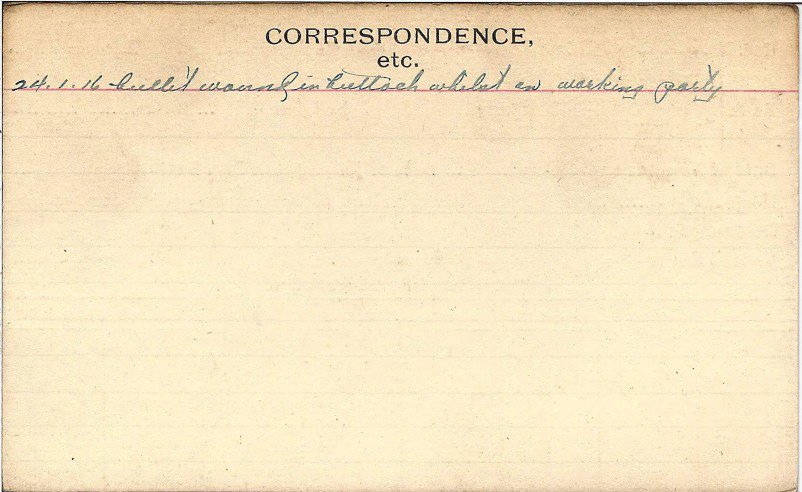 CORRESPONDENCE,
etc.
24.1.16 bullet wound in buttock whilst on working party